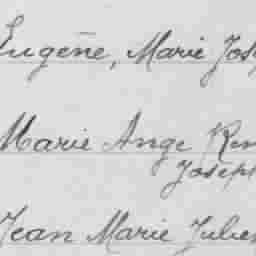 Eugène, Marie Jos
Marie Ange Ren
Joseph
Jean Marie Julien